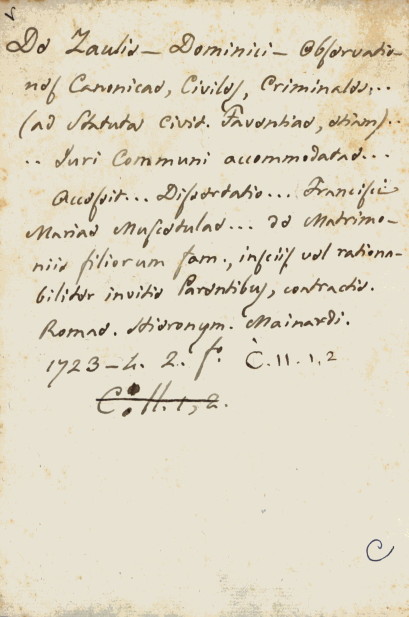 De Zaulis - Dominici - Observatio-
nes Canonicae, Civiles, Criminales...
(ad Statuta Civit. Faventiae, etiam)..
.. Juri Communi accommodatae...
Accessit... Dissertatio... Francisci
Mariae Muscetulae... de Matrimo-
niis filiorum fam., insciis vel rationa-
biliter invitis Parentibus, contractis.
Romae. Hieronym. Mainardi.
1723 - t. 2. fo. C. 11. 1, 2
C. 11. 1, 2.
C